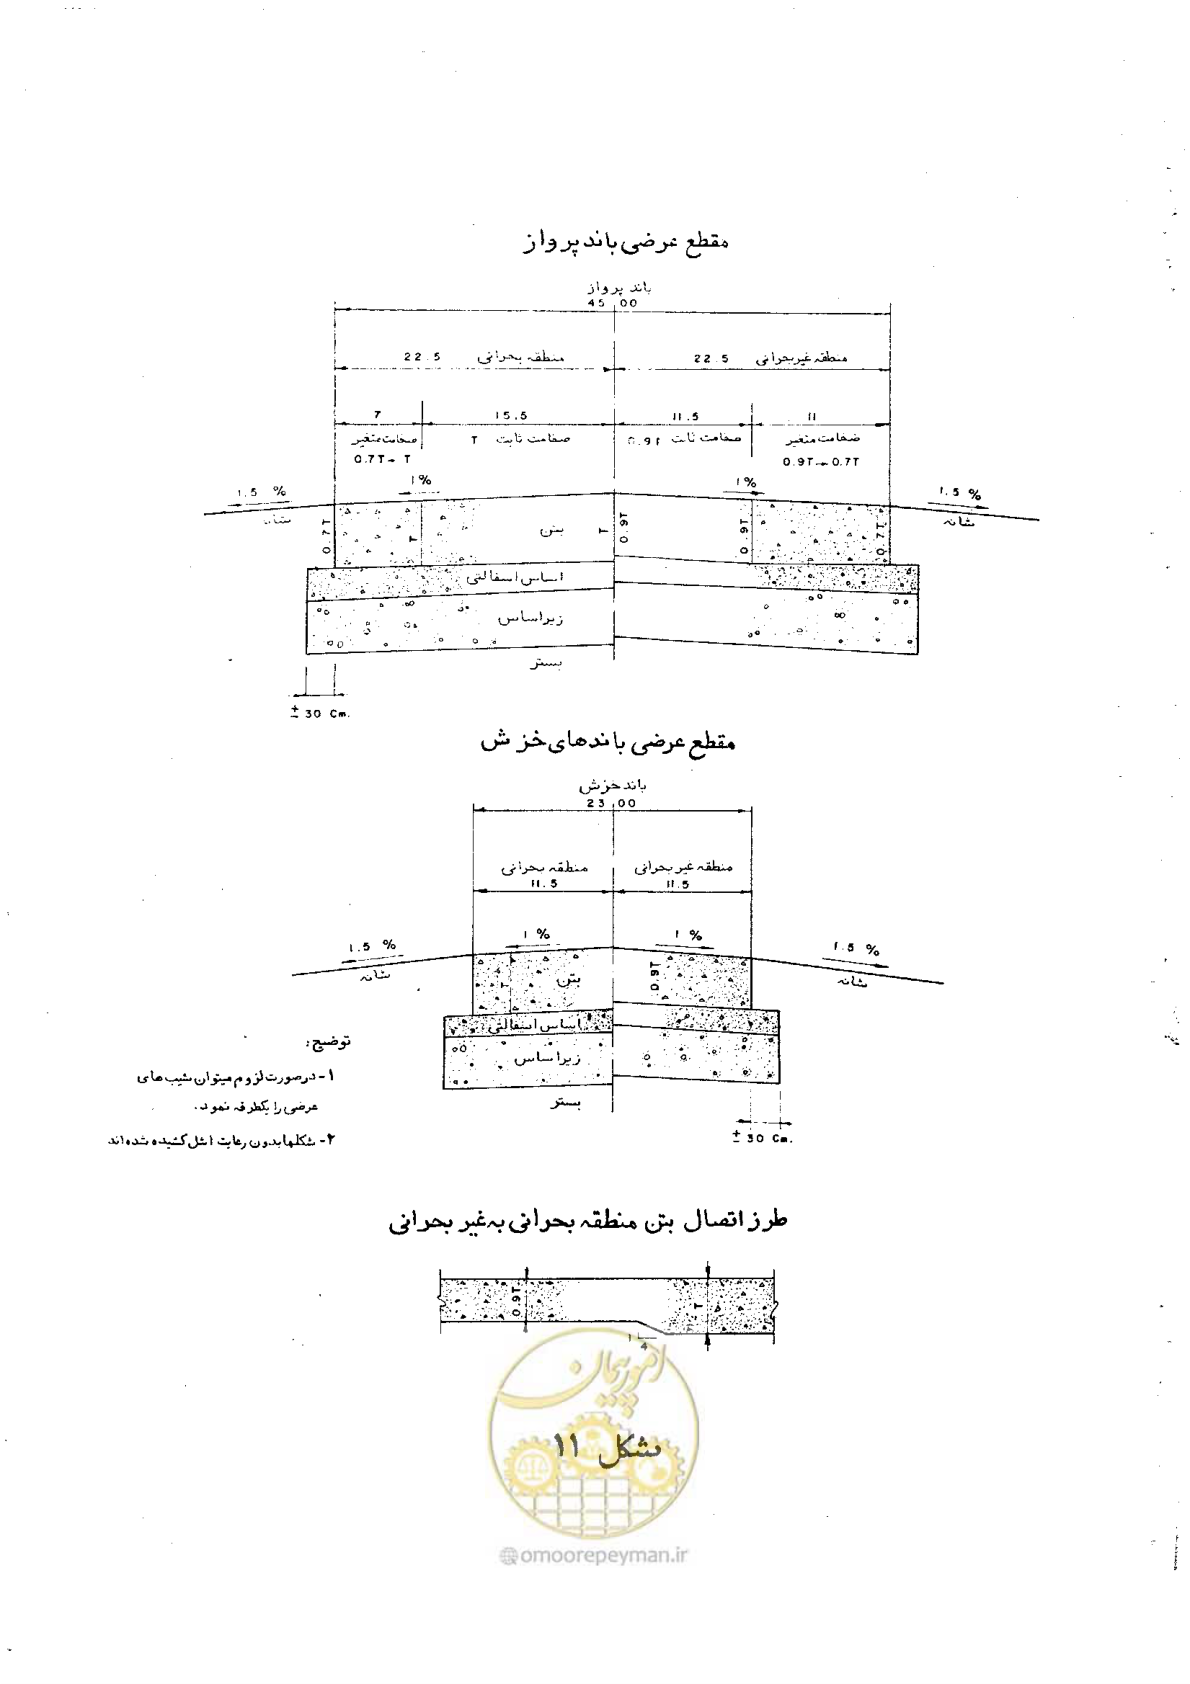 مقطع عرضی باند پرواز
باند پرواز
45.00
22.5 منطقه بحرانی
22.5 منطقه غیربحرانی
7
15.5
11.5
11
ضخامت متغیر
T ضخامت ثابت
0.9T ضخامت ثابت
ضخامت متغیر
0.7T → T
0.9T → 0.7T
1.5 %
1%
1%
1.5 %
شانه
شانه
0.7T
T
بتن
T
0.9T
0.9T
0.7T
اساس اسفالتی
زیراساس
بستر
± 30 Cm.
مقطع عرضی باندهای خزش
باند خزش
23.00
منطقه بحرانی
11.5
منطقه غیر بحرانی
11.5
1.5 %
1 %
1 %
1.5 %
شانه
شانه
T
بتن
0.9T
اساس اسفالتی
زیراساس
بستر
± 30 Cm.
توضیح:
۱- درصورت لزوم میتوان شیب های
عرضی را یکطرفه نمود.
۲- شکلها بدون رعایت اشل کشیده شده اند
طرز اتصال بتن منطقه بحرانی به غیر بحرانی
0.9T
T
1
4
امور پیمان
شکل ۱۱
@omoorepeyman.ir